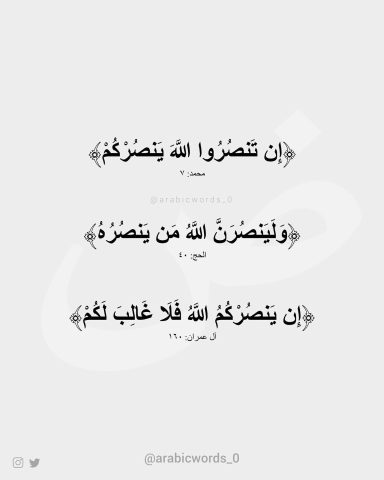 ﴿إِن تَنصُرُوا اللَّهَ يَنصُرْكُمْ﴾
محمد: ٧
@arabicwords_0
﴿وَلَيَنصُرَنَّ اللَّهُ مَن يَنصُرُهُ﴾
الحج: ٤٠
﴿إِن يَنصُرْكُمُ اللَّهُ فَلَا غَالِبَ لَكُمْ﴾
آل عمران: ١٦٠
@arabicwords_0